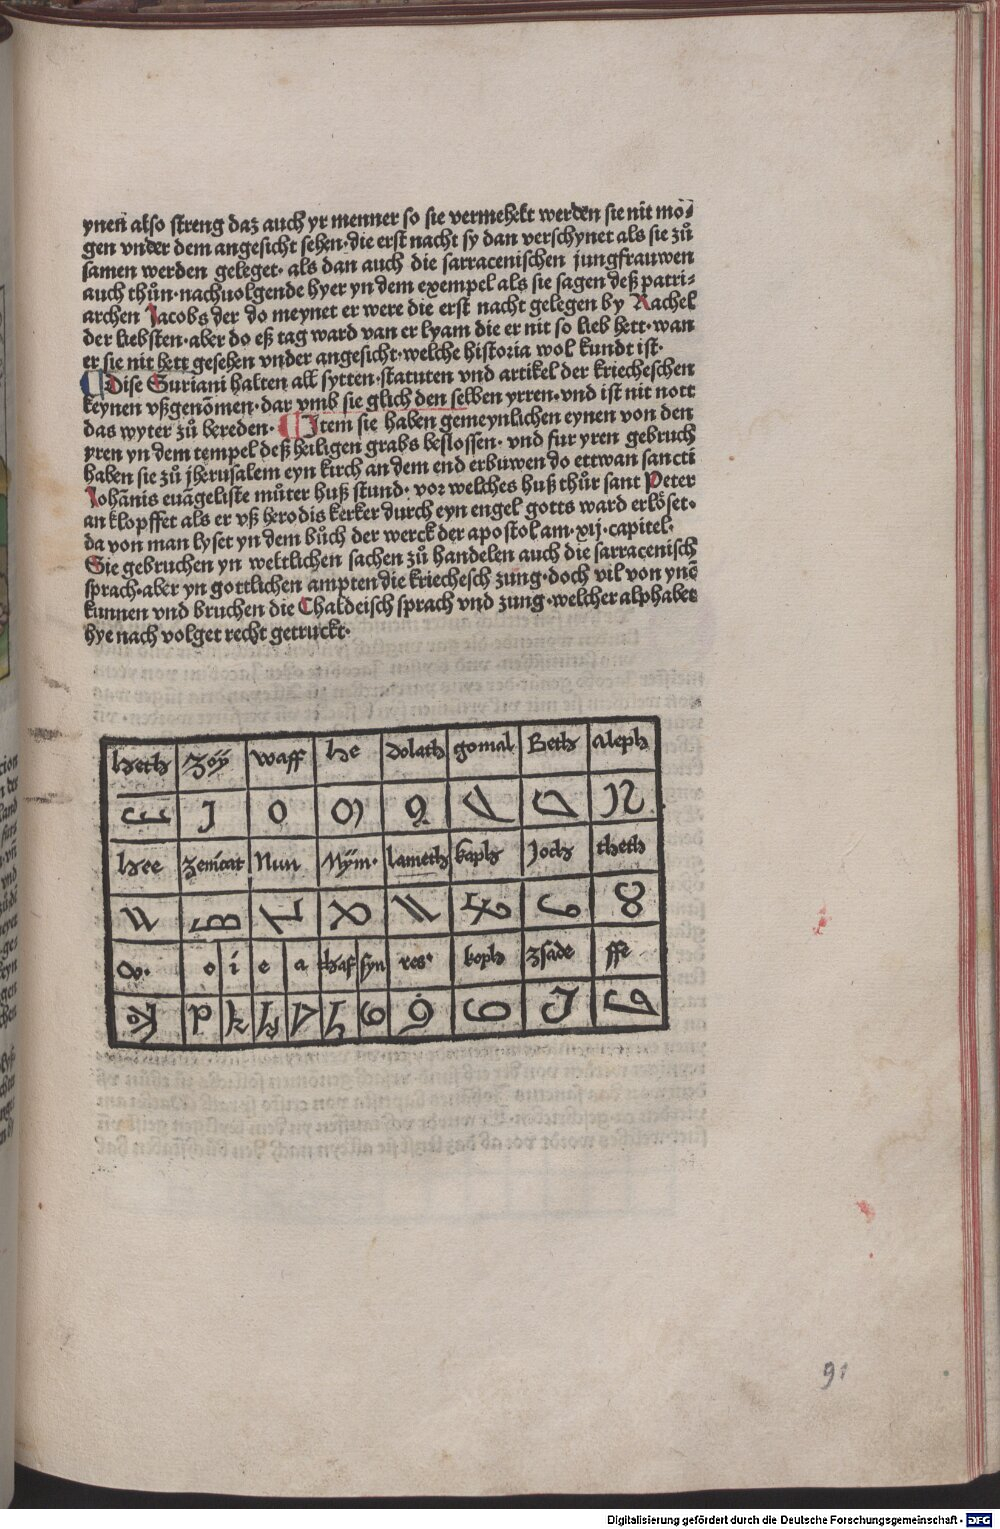 ynen also streng daz auch yr menner so sie vermehelt werden sie nit mö⸗
gen vnder dem angesicht sehen·die erst nacht sy dan verschynet als sie zů
samen werden geleget· als dan auch die sarracenischen jungfrauwen
auch thůn·nachuolgende hyer yn dem exempel als sie sagen deß patri⸗
archen Jacobs der do meynet er were die erst nacht gelegen by Rachel
der liebsten·aber do eß tag ward van er lyam die er nit so lieb hett·wan
er sie nit hett gesehen vnder angesicht·welche historia wol kundt ist·
¶ Dise Suriani halten all sytten·statuten vnd artikel der kriecheschen
keynen vßgenōmen·dar vmb sie glich den selben yrren·vnd ist nit nott
das wyter zů bereden· ¶ Item sie haben gemeynlichen eynen von den
yren yn dem tempel deß heiligen grabs beslossen· vnd fur yren gebruch
haben sie zů jherusalem eyn kirch an dem end erbuwen do ettwan sancti
Johānis euāgeliste můter huß stund· vor welches huß thůr sant Peter
an klopffet als er vß herodis kerker durch eyn engel gotts ward erlöset·
da von man lyset yn dem bůch der werck der apostolam·xij·capitel·
Sie gebruchen yn weltlichen sachen zů handelen auch die sarracenisch
sprach·aber yn gottlichen ampten die kriechesch zung·doch vil von ynē
kunnen vnd bruchen die Chaldeisch sprach vnd zung·welcher alphabet
hye nach volget recht getruckt·
heth zoÿ waff he dolath gomal Beth aleph
hee zemcat Nun Mÿm· lameth kaph Joch theth
o i e a thaf syn res· koph zsade ffe
91
Digitalisierung gefördert durch die Deutsche Forschungsgemeinschaft - DFG